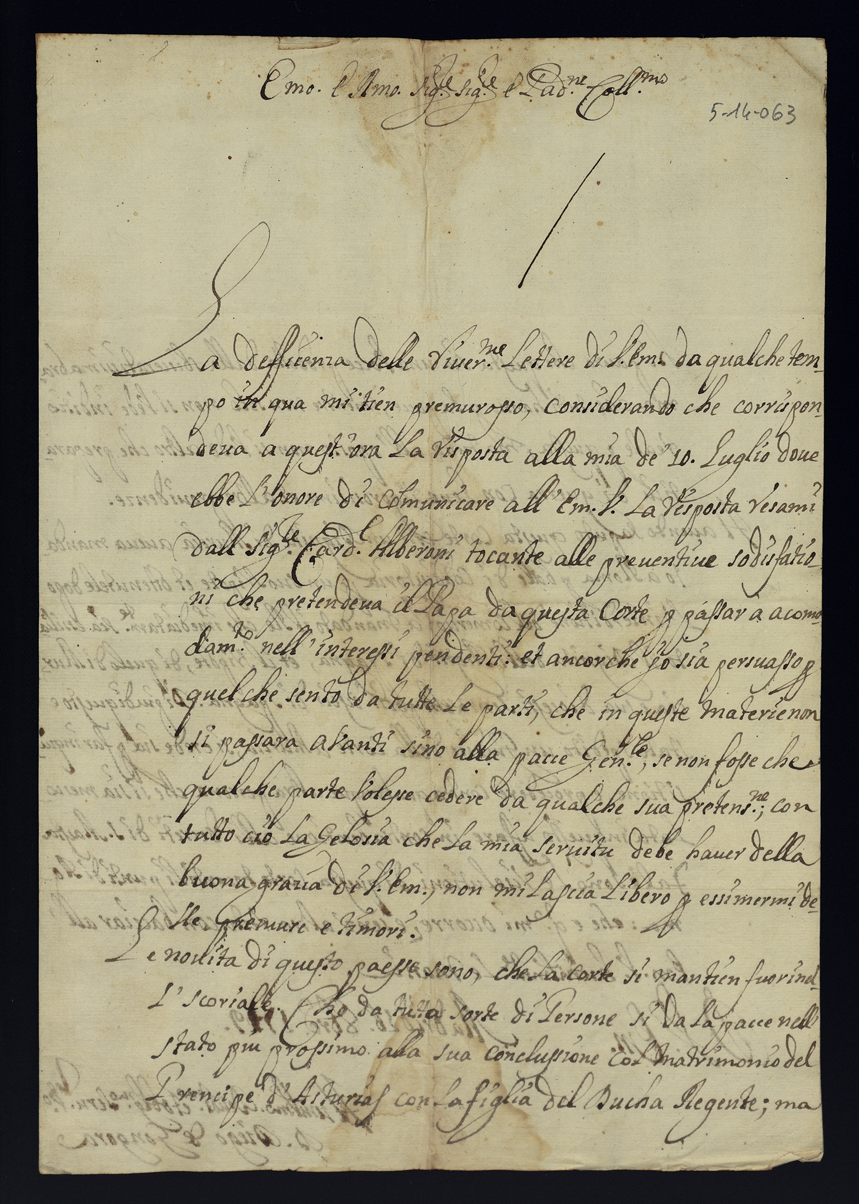 Emo. e Rmo. Sig.re Sig.re e Pad.ne Coll.mo
5-14-063
La defficenza delle river.me Lettere di V. Em. da qualche tem-
po in qua mi tien premurosso, considerando che corrispon-
deva a quest'ora La risposta alla mia de' 10. Luglio dove
ebbe L'onore di comunicare all'Em. V. La risposta resami
dall Sig.re Card.l Alberoni tocante alle preventive sodisfatio-
ni che pretendeva il Papa da questa Corte p passar a acomo-
dam.to nell'interessi pendenti: et ancorche io sia persuasso p
quelche sento da tutte Le parti, che in queste materie non
si passara avanti sino alla pace Gen.le, se non fosse che
qualche parte volesse cedere da qualche sua pretens.ne; con
tutto cio La Gelosia che La mia servitu debe haver della
buona gratia di V. Em., non mi Lascia Libero p essimermi de-
lle premure e timori.
Le novita di questo paesse sono, che La Corte si mantien fuori nel-
L'scoriale. Che da tutta sorte di Persone si da La pace nell
stato piu prossimo alla sua conclussione col matrimonio del
Prencipe d'Asturias con La figlia del Ducha Regente; ma